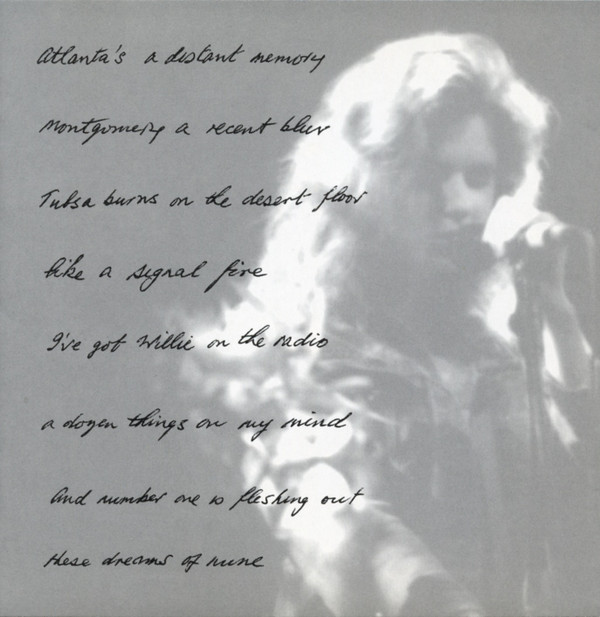 Atlanta's a distant memory
Montgomery a recent blur
Tulsa burns on the desert floor
like a signal fire
I've got Willie on the radio
a dozen things on my mind
And number one is fleshing out
these dreams of mine